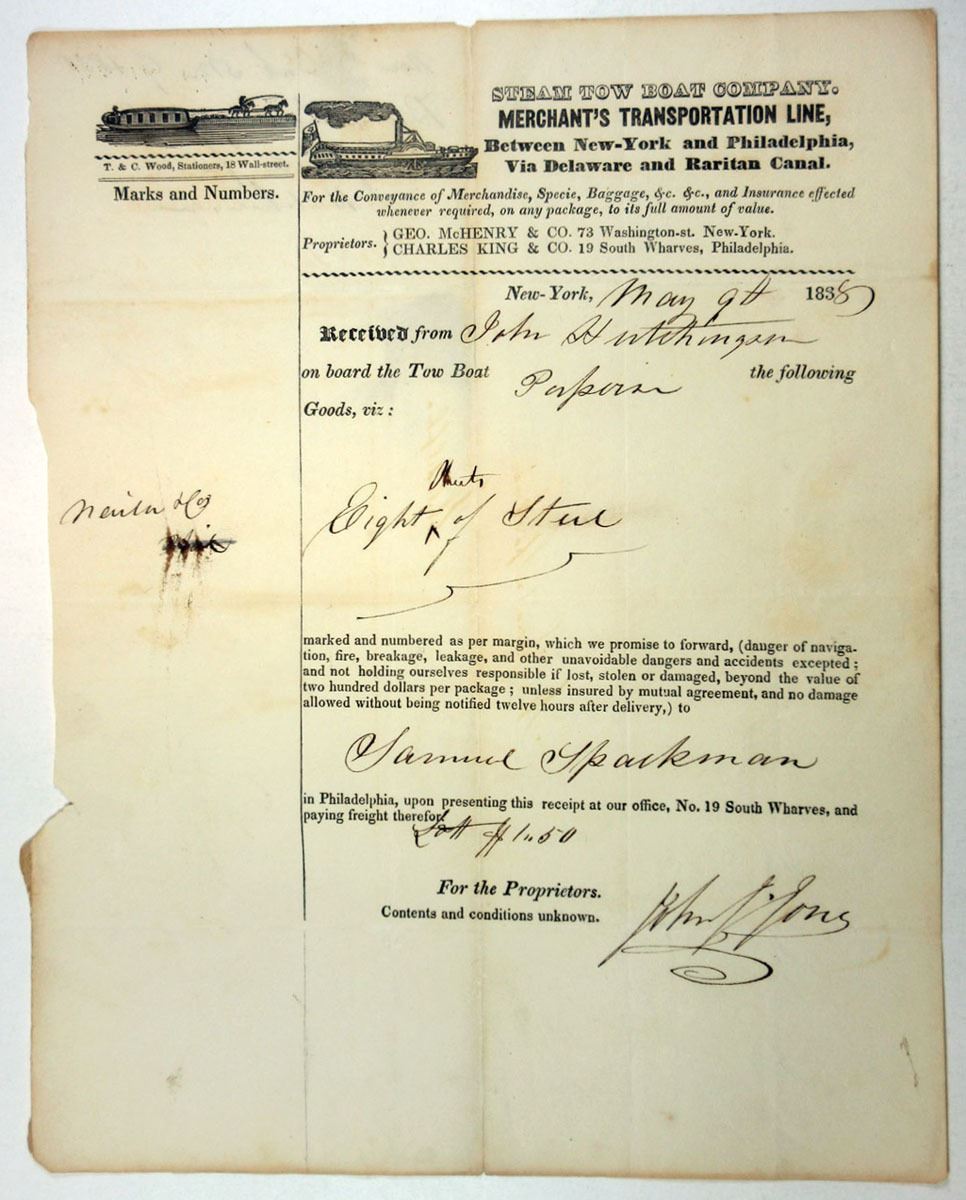 T. & C. Wood, Stationers, 18 Wall-street.
Marks and Numbers.
STEAM TOW BOAT COMPANY.
MERCHANT'S TRANSPORTATION LINE,
Between New-York and Philadelphia,
Via Delaware and Raritan Canal.
For the Conveyance of Merchandise, Specie, Baggage, &c. &c., and Insurance effected
whenever required, on any package, to its full amount of value.
Proprietors. } GEO. McHENRY & CO. 73 Washington-st. New-York.
CHARLES KING & CO. 19 South Wharves, Philadelphia.
New-York, May 9th 1838
Received from John Hutchingson
on board the Tow Boat the following
Goods, viz:
Eight of Steel
marked and numbered as per margin, which we promise to forward, (danger of naviga-
tion, fire, breakage, leakage, and other unavoidable dangers and accidents excepted;
and not holding ourselves responsible if lost, stolen or damaged, beyond the value of
two hundred dollars per package; unless insured by mutual agreement, and no damage
allowed without being notified twelve hours after delivery,) to
Samuel Spackman
in Philadelphia, upon presenting this receipt at our office, No. 19 South Wharves, and
paying freight therefor
$1.50
For the Proprietors.
Contents and conditions unknown.
John Jones